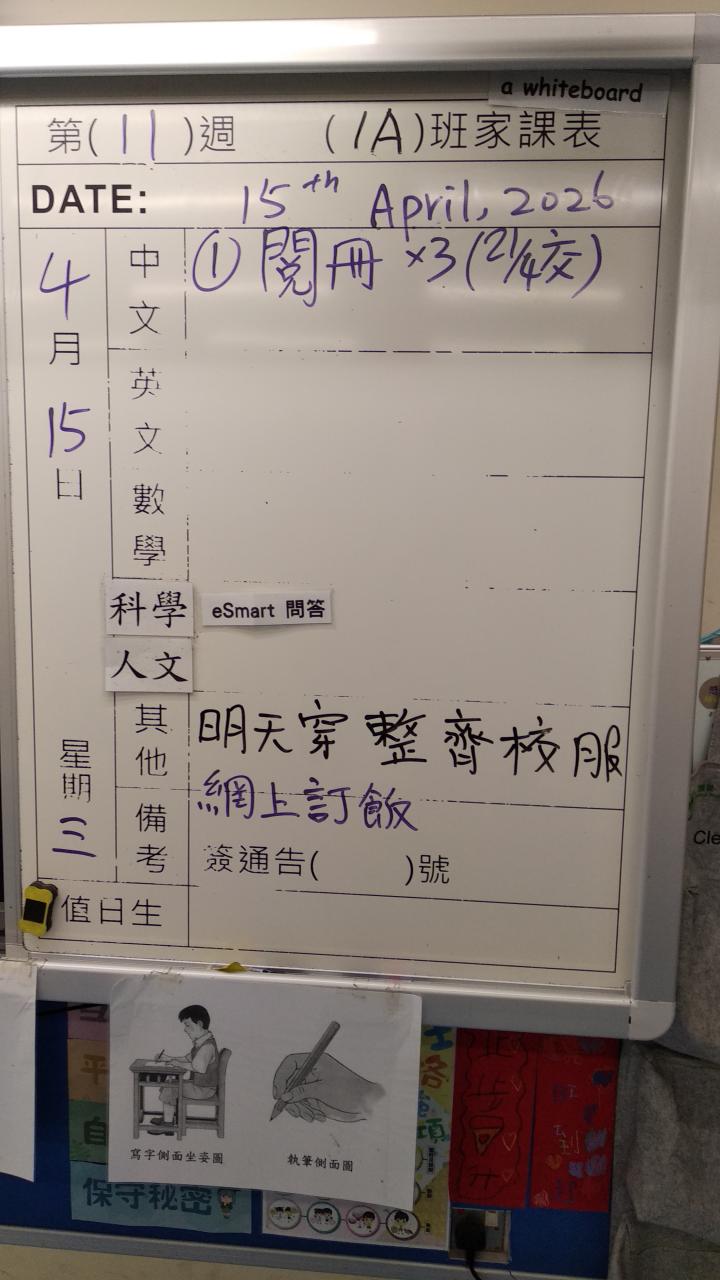 a whiteboard
第(11)週 (1A)班家課表
DATE: 15th April, 2026
4月15日 星期三
中文 ① 閱冊 ×3 (21/4交)
英文
數學
科學 eSmart 問答
人文
其他 明天穿整齊校服
網上訂飯
備考 簽通告( )號
值日生
寫字側面坐姿圖 執筆側面圖
保守秘密
Cle